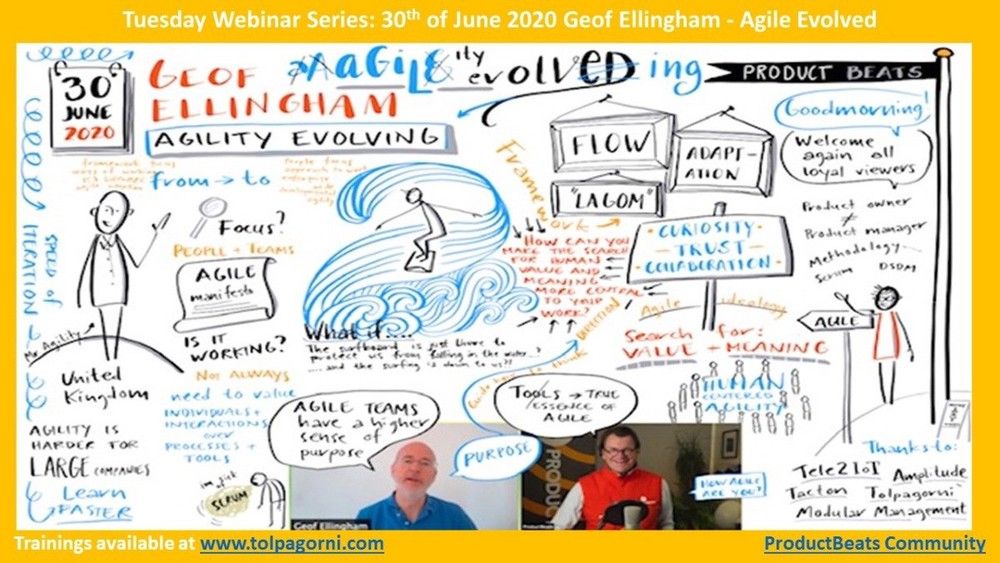 Tuesday Webinar Series: 30th of June 2020 Geof Ellingham - Agile Evolved
30
JUNE
2020
GEOF
ELLINGHAM
AGILE ity evolved ing
AGILITY EVOLVING
PRODUCT BEATS
Goodmorning!
Welcome
again all
loyal viewers
from → to
Focus?
PEOPLE + TEAMS
AGILE
manifesto
IS IT
WORKING?
NOT ALWAYS
need to value
INDIVIDUALS +
INTERACTIONS
over
PROCESSES +
TOOLS
SPEED of
ITERATION
Mr Agility
United
Kingdom
AGILITY IS
HARDER FOR
LARGE COMPANIES
Learn
FASTER
SCRUM
What if....
The surfboard is just there to
protect us from falling in the water..?
...and the surfing is down to us?!
Framework
FLOW
ADAPT-
ATION
"LAGOM"
HOW CAN YOU
MAKE THE SEARCH
FOR HUMAN
VALUE AND
MEANING
MORE CENTRAL
TO YOUR
WORK?
CURIOSITY
- TRUST -
COLLABORATION
Agile ideology
Search for:
VALUE + MEANING
HUMAN
CENTERED
AGILITY
Product owner
≠
Product manager
Methodology...
Scrum DSDM
AGILE
AGILE TEAMS
have a higher
sense of
purpose
PURPOSE
TOOLS → TRUE
ESSENCE OF
AGILE
HOW AGILE
ARE YOU?
Geof Ellingham
Thanks to:
Tele2 IoT Amplitude
Tacton Tolpagorni
Modular Management
Trainings available at www.tolpagorni.com
ProductBeats Community